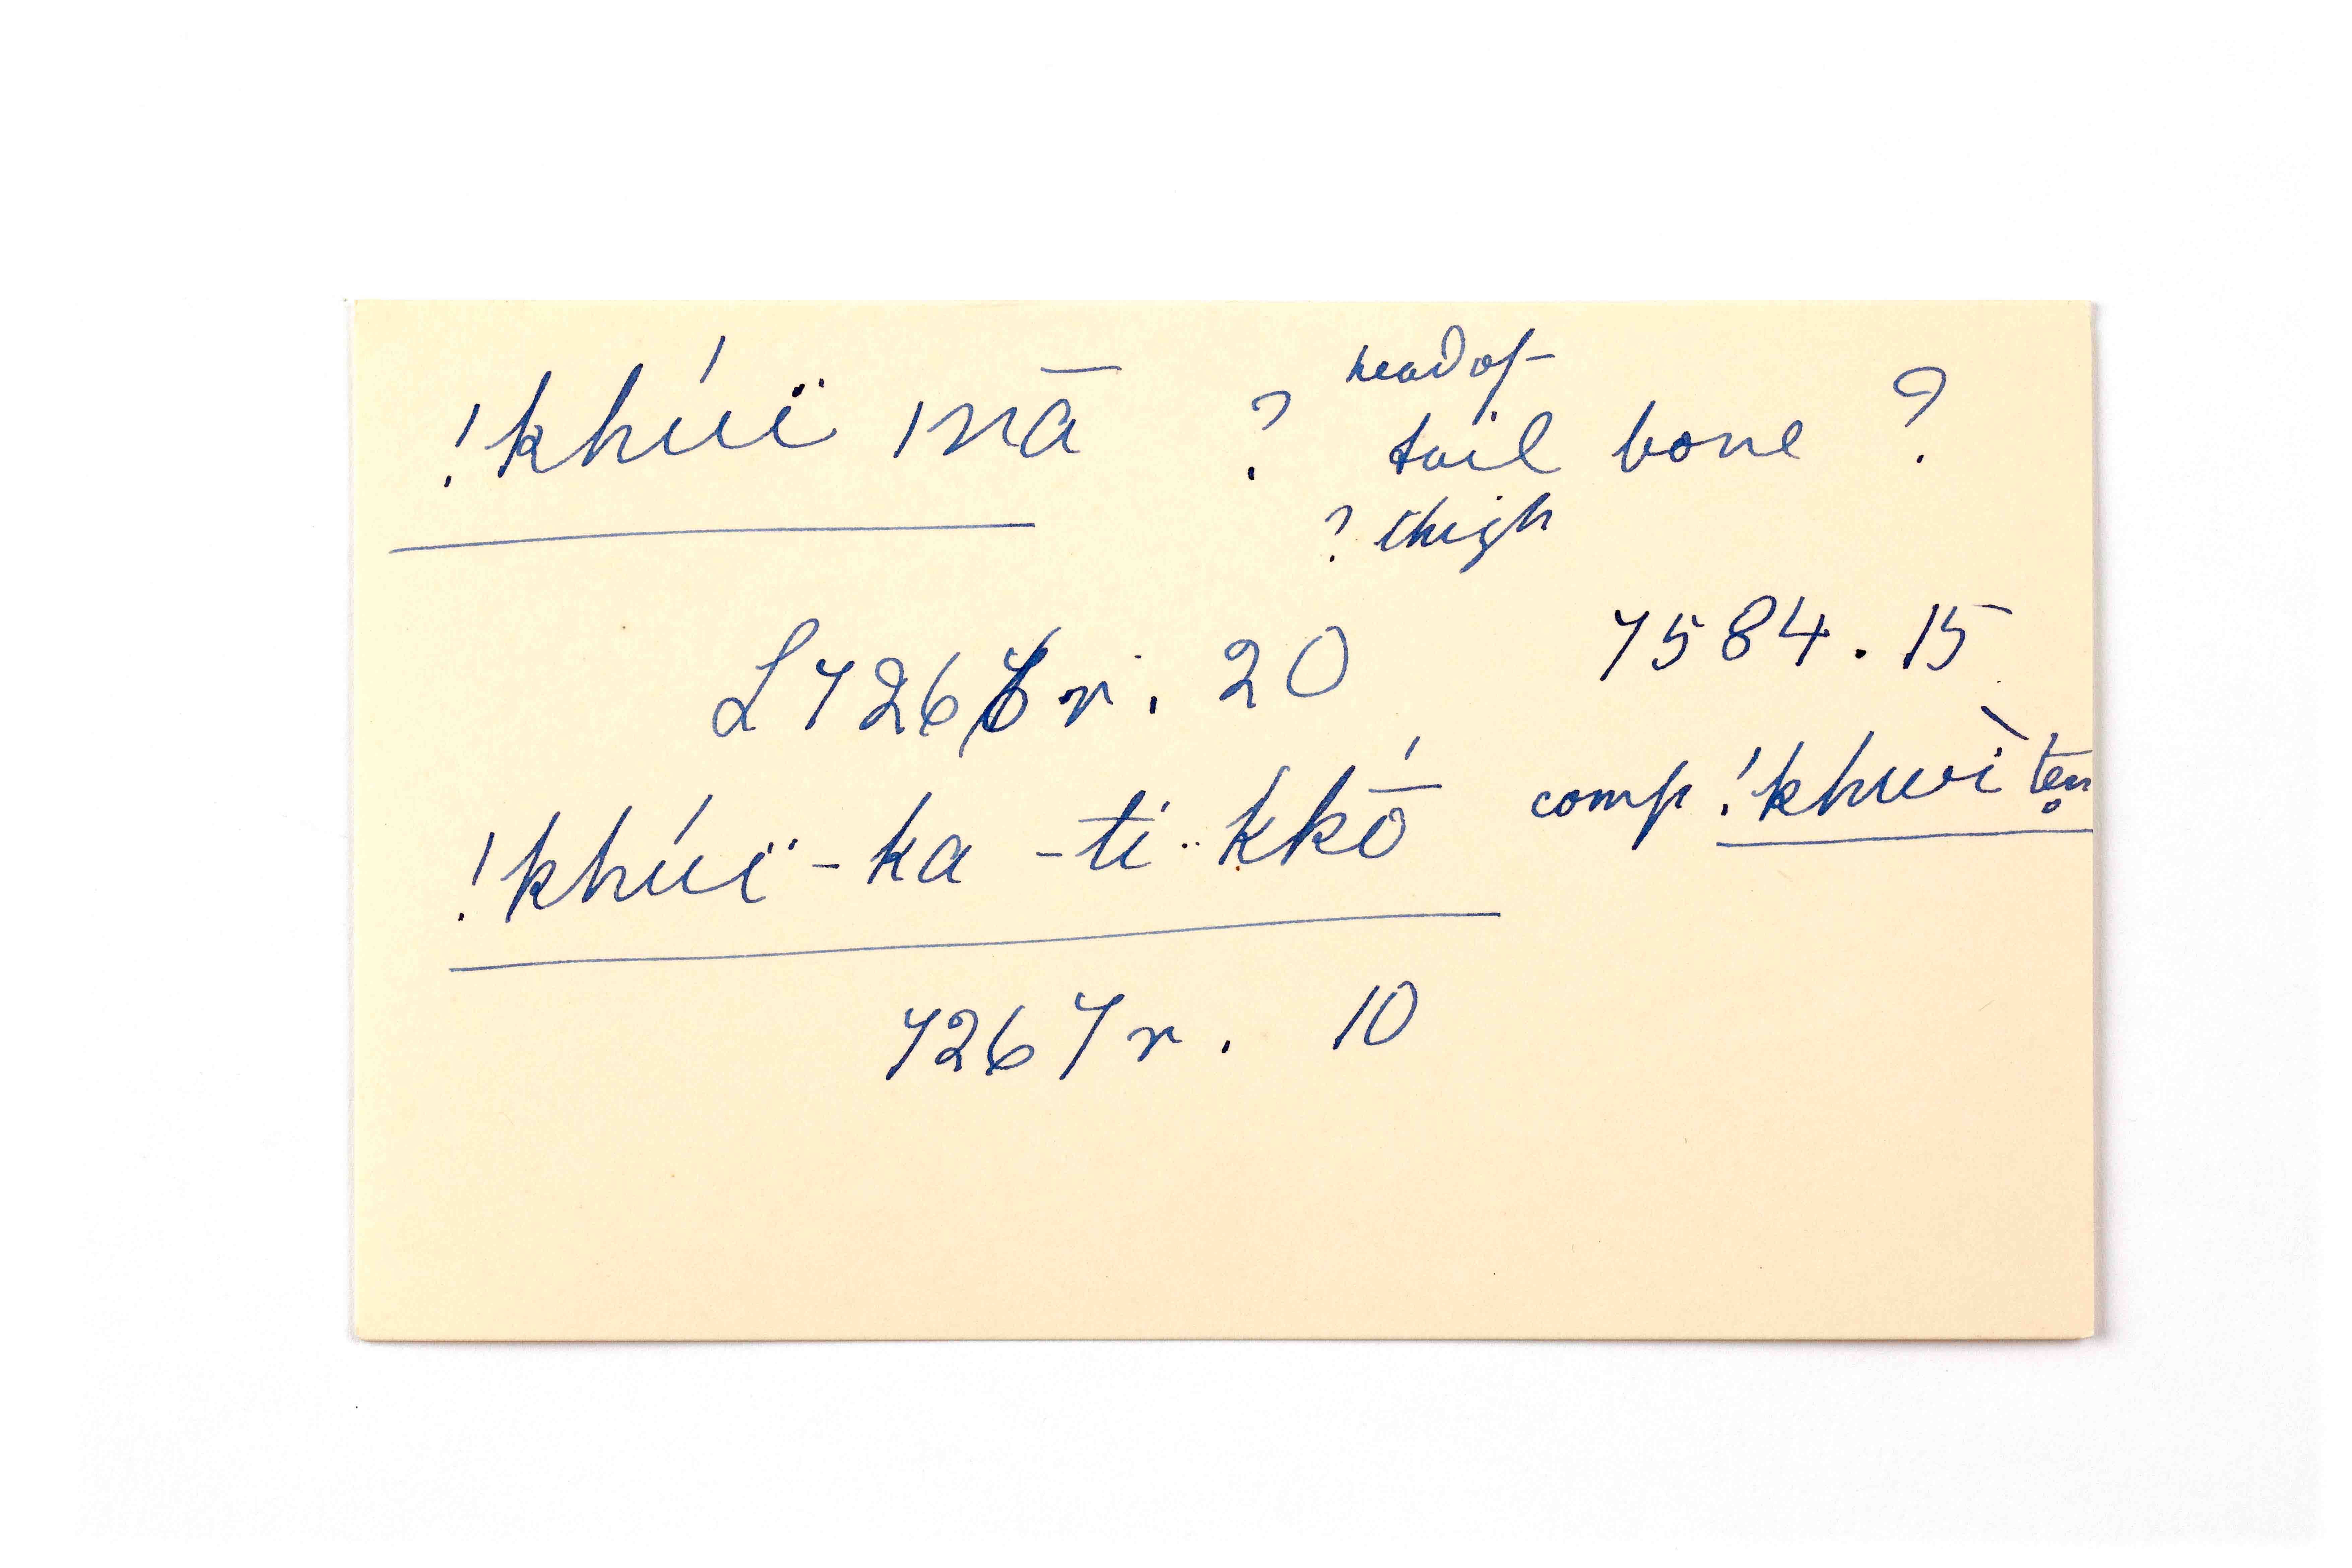 head of
!khúï ınā ? tail bone ?
? thigh
L7267r. 20 7584. 15
!khúï-ka-ti kkṓ comp !khwìtẹn
7267r. 10